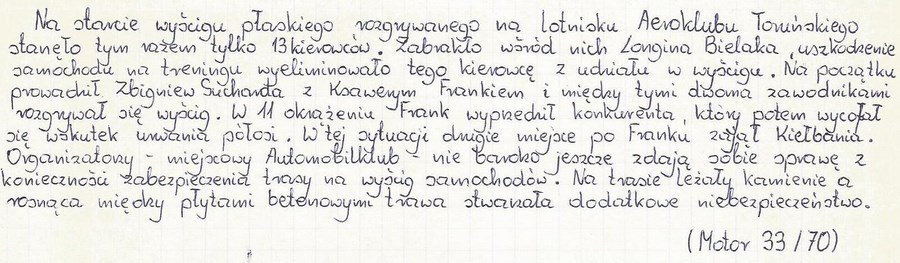 Na starcie wyścigu płaskiego rozgrywanego na lotnisku Aeroklubu Toruńskiego
stanęło tym razem tylko 13 kierowców. Zabrakło wśród nich Longina Bielaka, uszkodzenie
samochodu na treningu wyeliminowało tego kierowcę z udziału w wyścigu. Na początku
prowadził Zbigniew Suchanda z Ksawerym Frankiem i między tymi dwoma zawodnikami
rozgrywał się wyścig. W 11 okrążeniu Frank wyprzedził konkurenta, który potem wycofał
się wskutek urwania półosi. W tej sytuacji drugie miejsce po Franku zajął Kiełbania.
Organizatorzy - miejscowy Automobilklub - nie bardzo jeszcze zdają sobie sprawę z
konieczności zabezpieczenia trasy na wyścig samochodów. Na trasie leżały kamienie a
rosnąca między płytami betonowymi trawa stwarzała dodatkowe niebezpieczeństwo.
(Motor 33/70)